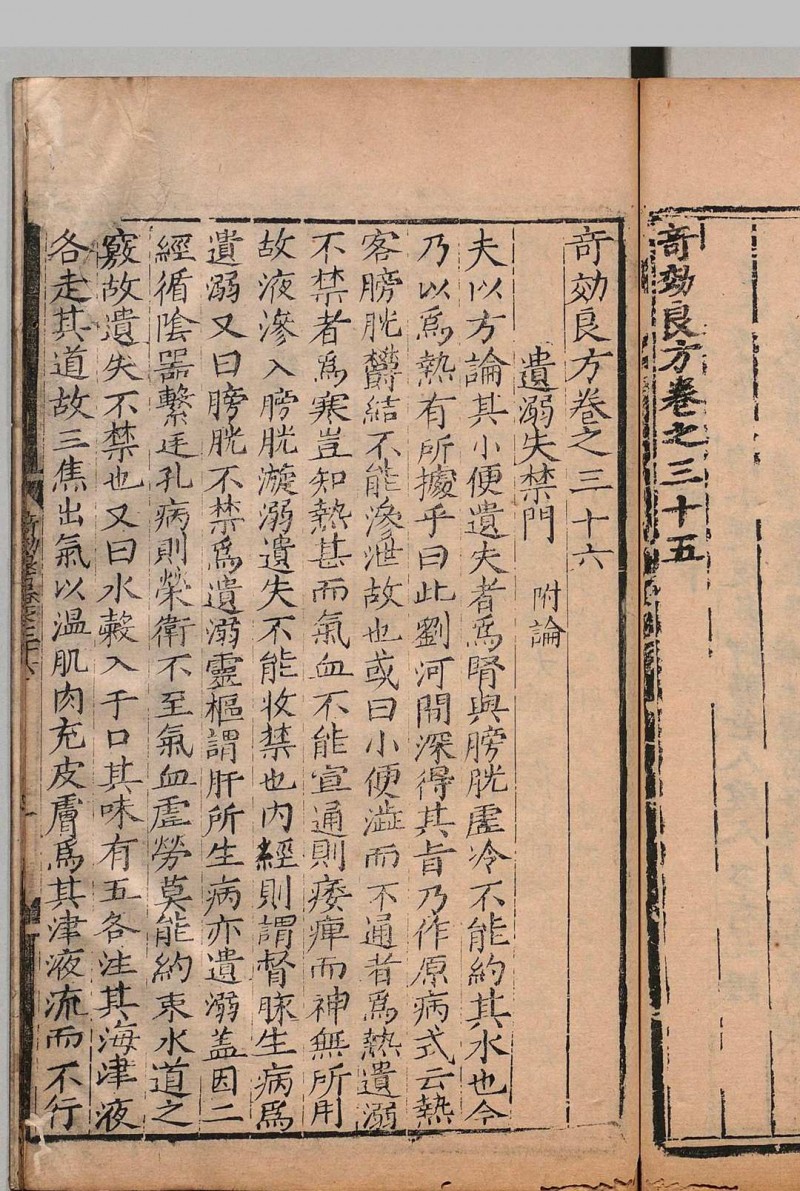 奇效良方卷之三十五
奇效良方卷之三十六
遺溺失禁門 附論
夫以方論其小便遺失者爲腎與膀胱虛冷不能約其水也今
乃以爲熱有所據乎曰此劉河間深得其旨乃作原病式云熱
客膀胱欝結不能滲泄故也或曰小便澁而不通者爲熱遺溺
不禁者爲寒豈知熱甚而氣血不能宣通則痿痺而神無所用
故液滲入膀胱漩溺遺失不能收禁也内經則謂督脉生病爲
遺溺又曰膀胱不禁爲遺溺靈樞謂肝所生病亦遺溺盖因二
經循陰器繫廷孔病則榮衛不至氣血虛勞莫能約束水道之
竅故遺失不禁也又曰水糓入于口其味有五各注其海津液
各走其道故三焦出氣以温肌肉充皮膚爲其津液流而不行